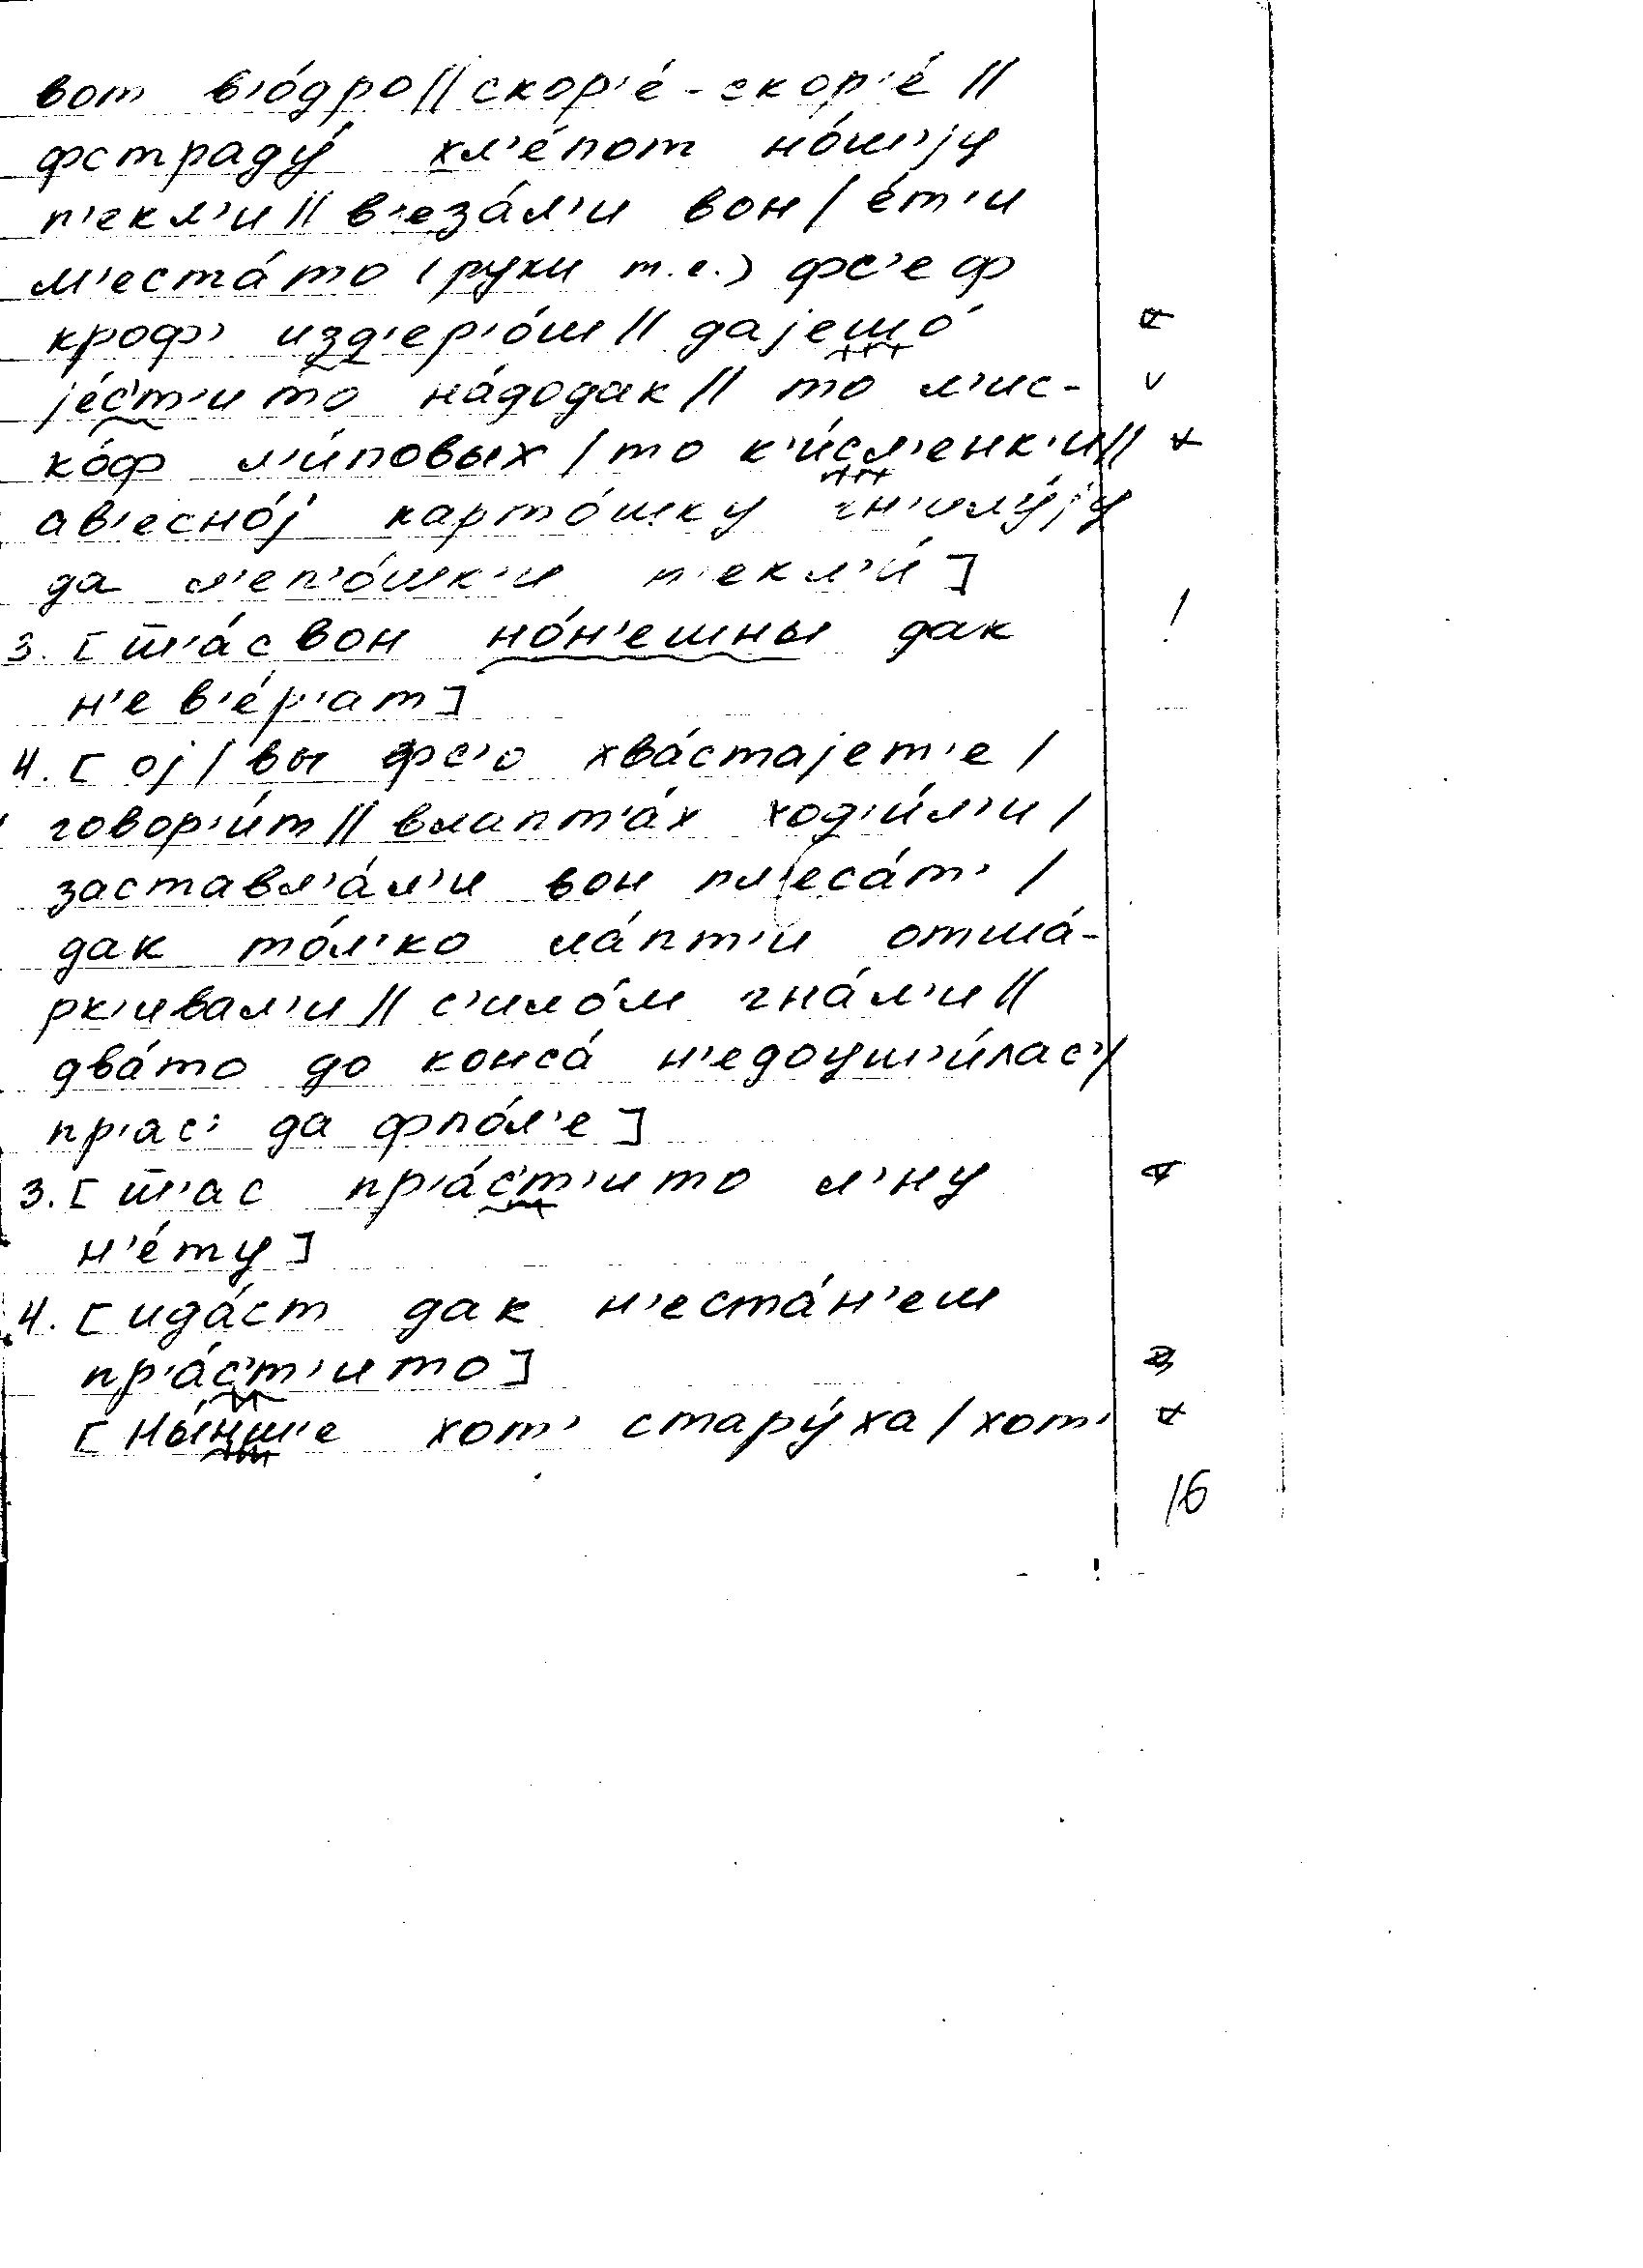 вот в'о́дро || скор'е́ - скор'е́ ||
фстраду́ хл'е́пот но́ш'jу
п'екл'и || в'еза́л'и вон / е́т'и
м'еста́то (руки т.е.) фс'е ф
кроф' изд'ер'о́ш || даjешо́
jе́с'т'и то на́додак || то л'ис-
ко́ф л'и́повых / то к'и́сл'енк'и ||
ав'есно́j карто́шку гн'илу́jу
да л'еп'о́шк'и п'екл'и́]
3. [т'а́с вон но́н'ешны дак
н'е в'е́р'ат]
4. [оj / вы фс'о хва́стаjет'е /
говор'и́т || влапт'а́х ход'и́л'и /
заставл'а́л'и вон пл'еса́т' /
дак то́л'ко ла́пт'и отша́-
рк'ивал'и || с'ило́м гна́л'и ||
два́то до конса́ н'едоуш'и́лас' /
пр'ас' да фпо́л'е]
3. [т'ас пр'а́с'т'ито л'ну
н'е́ту]
4. [ида́ст дак н'еста́н'еш
пр'а́с'т'ито]
[ны́нш'е хот' стару́ха / хот'
16